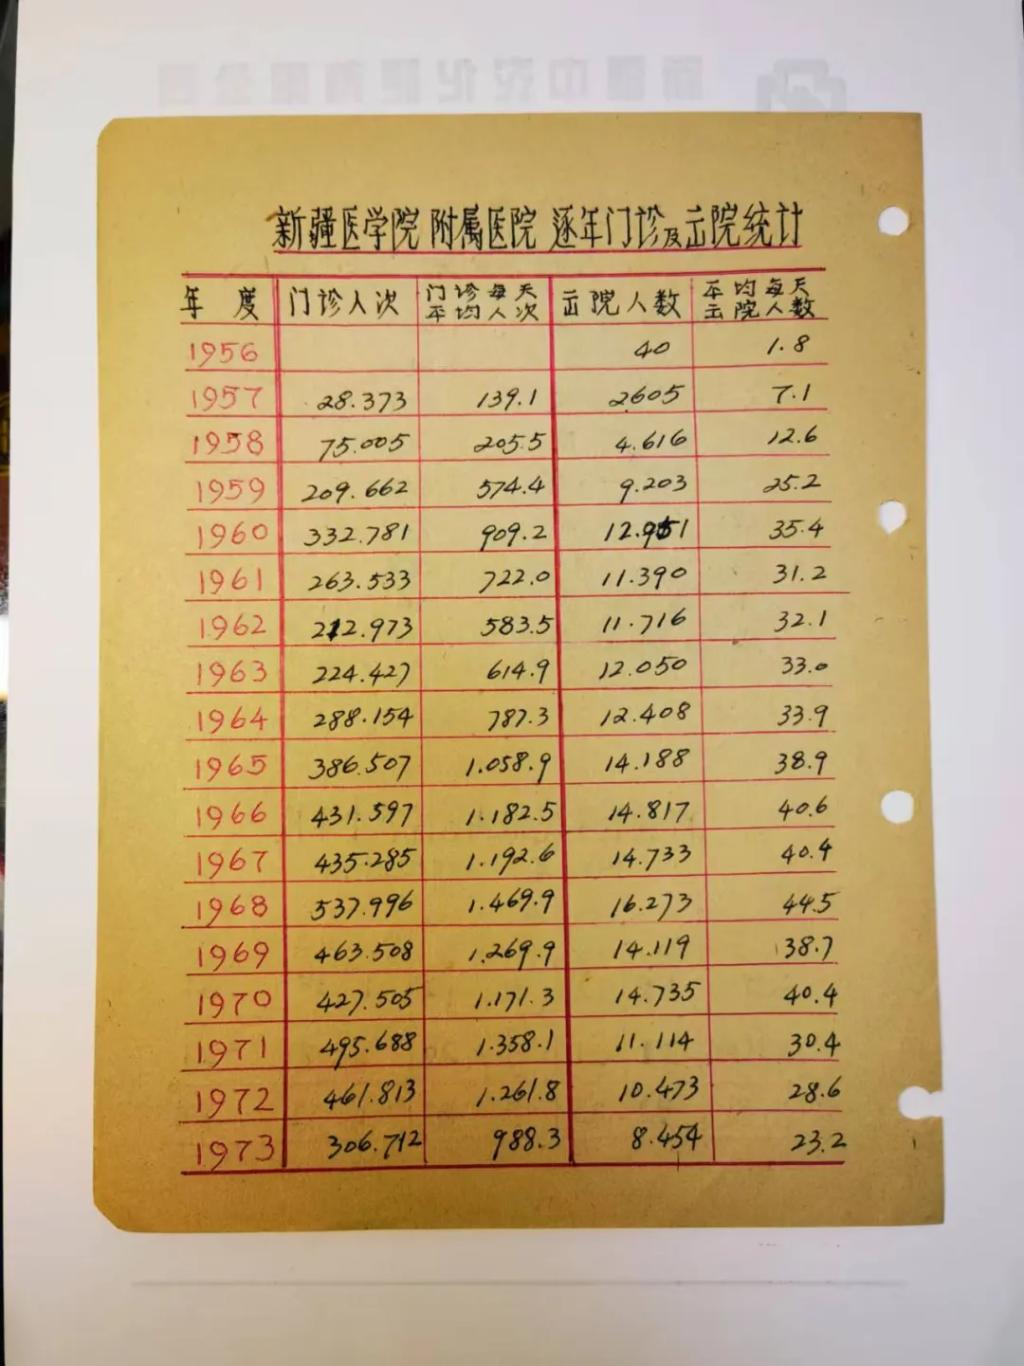 新疆医学院 附属医院 逐年门诊及出院统计
年度 门诊人次 门诊每天平均人次 出院人数 平均每天出院人数
1956 40 1.8
1957 28.373 139.1 2605 7.1
1958 75.005 205.5 4.616 12.6
1959 209.662 574.4 9.203 25.2
1960 332.781 909.2 12.951 35.4
1961 263.533 722.0 11.390 31.2
1962 212.973 583.5 11.716 32.1
1963 224.427 614.9 12.050 33.0
1964 288.154 787.3 12.408 33.9
1965 386.507 1.058.9 14.188 38.9
1966 431.597 1.182.5 14.817 40.6
1967 435.285 1.192.6 14.733 40.4
1968 537.996 1.469.9 16.273 44.5
1969 463.508 1.269.9 14.119 38.7
1970 427.505 1.171.3 14.735 40.4
1971 495.688 1.358.1 11.114 30.4
1972 461.813 1.261.8 10.473 28.6
1973 306.712 988.3 8.454 23.2